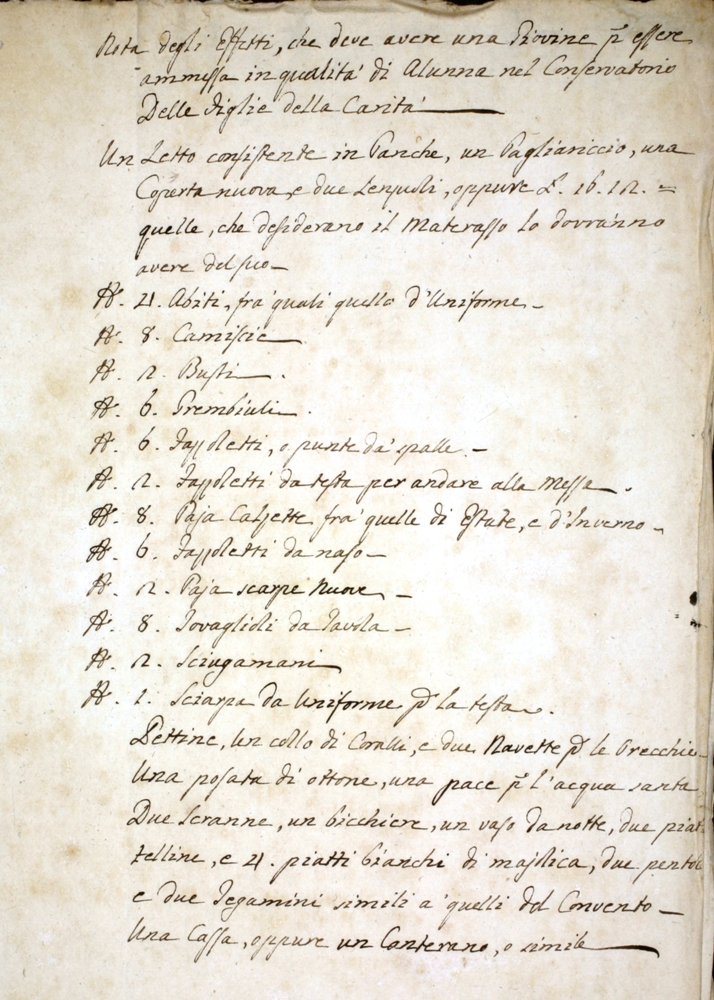 Nota degli Effetti, che deve avere una Giovine p̃ essere
ammessa in qualità di Alunna nel Conservatorio
Delle Figlie della Carità
Un Letto consistente in Panche, un Pagliariccio, una
Coperta nuova, e due Lenzuoli, oppure L. 16. 12. =
quelle, che desiderano il Materasso lo dovranno
avere del suo
N. 4. Abiti, fra' quali quello d'Uniforme
N. 8. Camiscie
N. 2. Busti
N. 6. Grembiuli
N. 6. Fazzoletti, o punte da' spalle
N. 2. Fazzoletti da testa per andare alla Messa
N. 8. Paja Calzette fra' quelle di Estate, e d'Inverno
N. 6. Fazzoletti da naso
N. 2. Paja scarpe Nuove
N. 8. Tovaglioli da Tavola
N. 2. Sciugamani
N. 1. Sciarpa da Uniforme p̃ la testa.
Pettine, Un collo di Coralli, e due Navette p̃ le Orecchie
Una posata di ottone, una pace p̃ l'acqua santa
Due Scranne, un bicchiere, un vaso da notte, due piat
telline, e 4. piatti bianchi di majolica, due pentole
e due Tegamini simili a' quelli del Convento
Una Cassa, oppure un Canterano, o simile